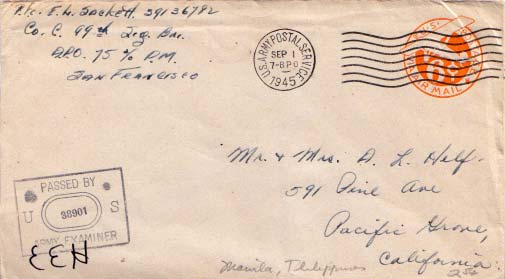 Pfc. E.L. Sackett. 39136782
Co. C. 99th Sig. Bn.
APO. 75 % P.M.
San Francisco
U.S. ARMY POSTAL SERVICE
SEP 1
7-8 PM
1945
AIR MAIL
Mr. & Mrs. A. L. Helf
591 Pine Ave
Pacific Grove,
California
PASSED BY
U 38901 S
ARMY EXAMINER
EEH
Manila, Philippines